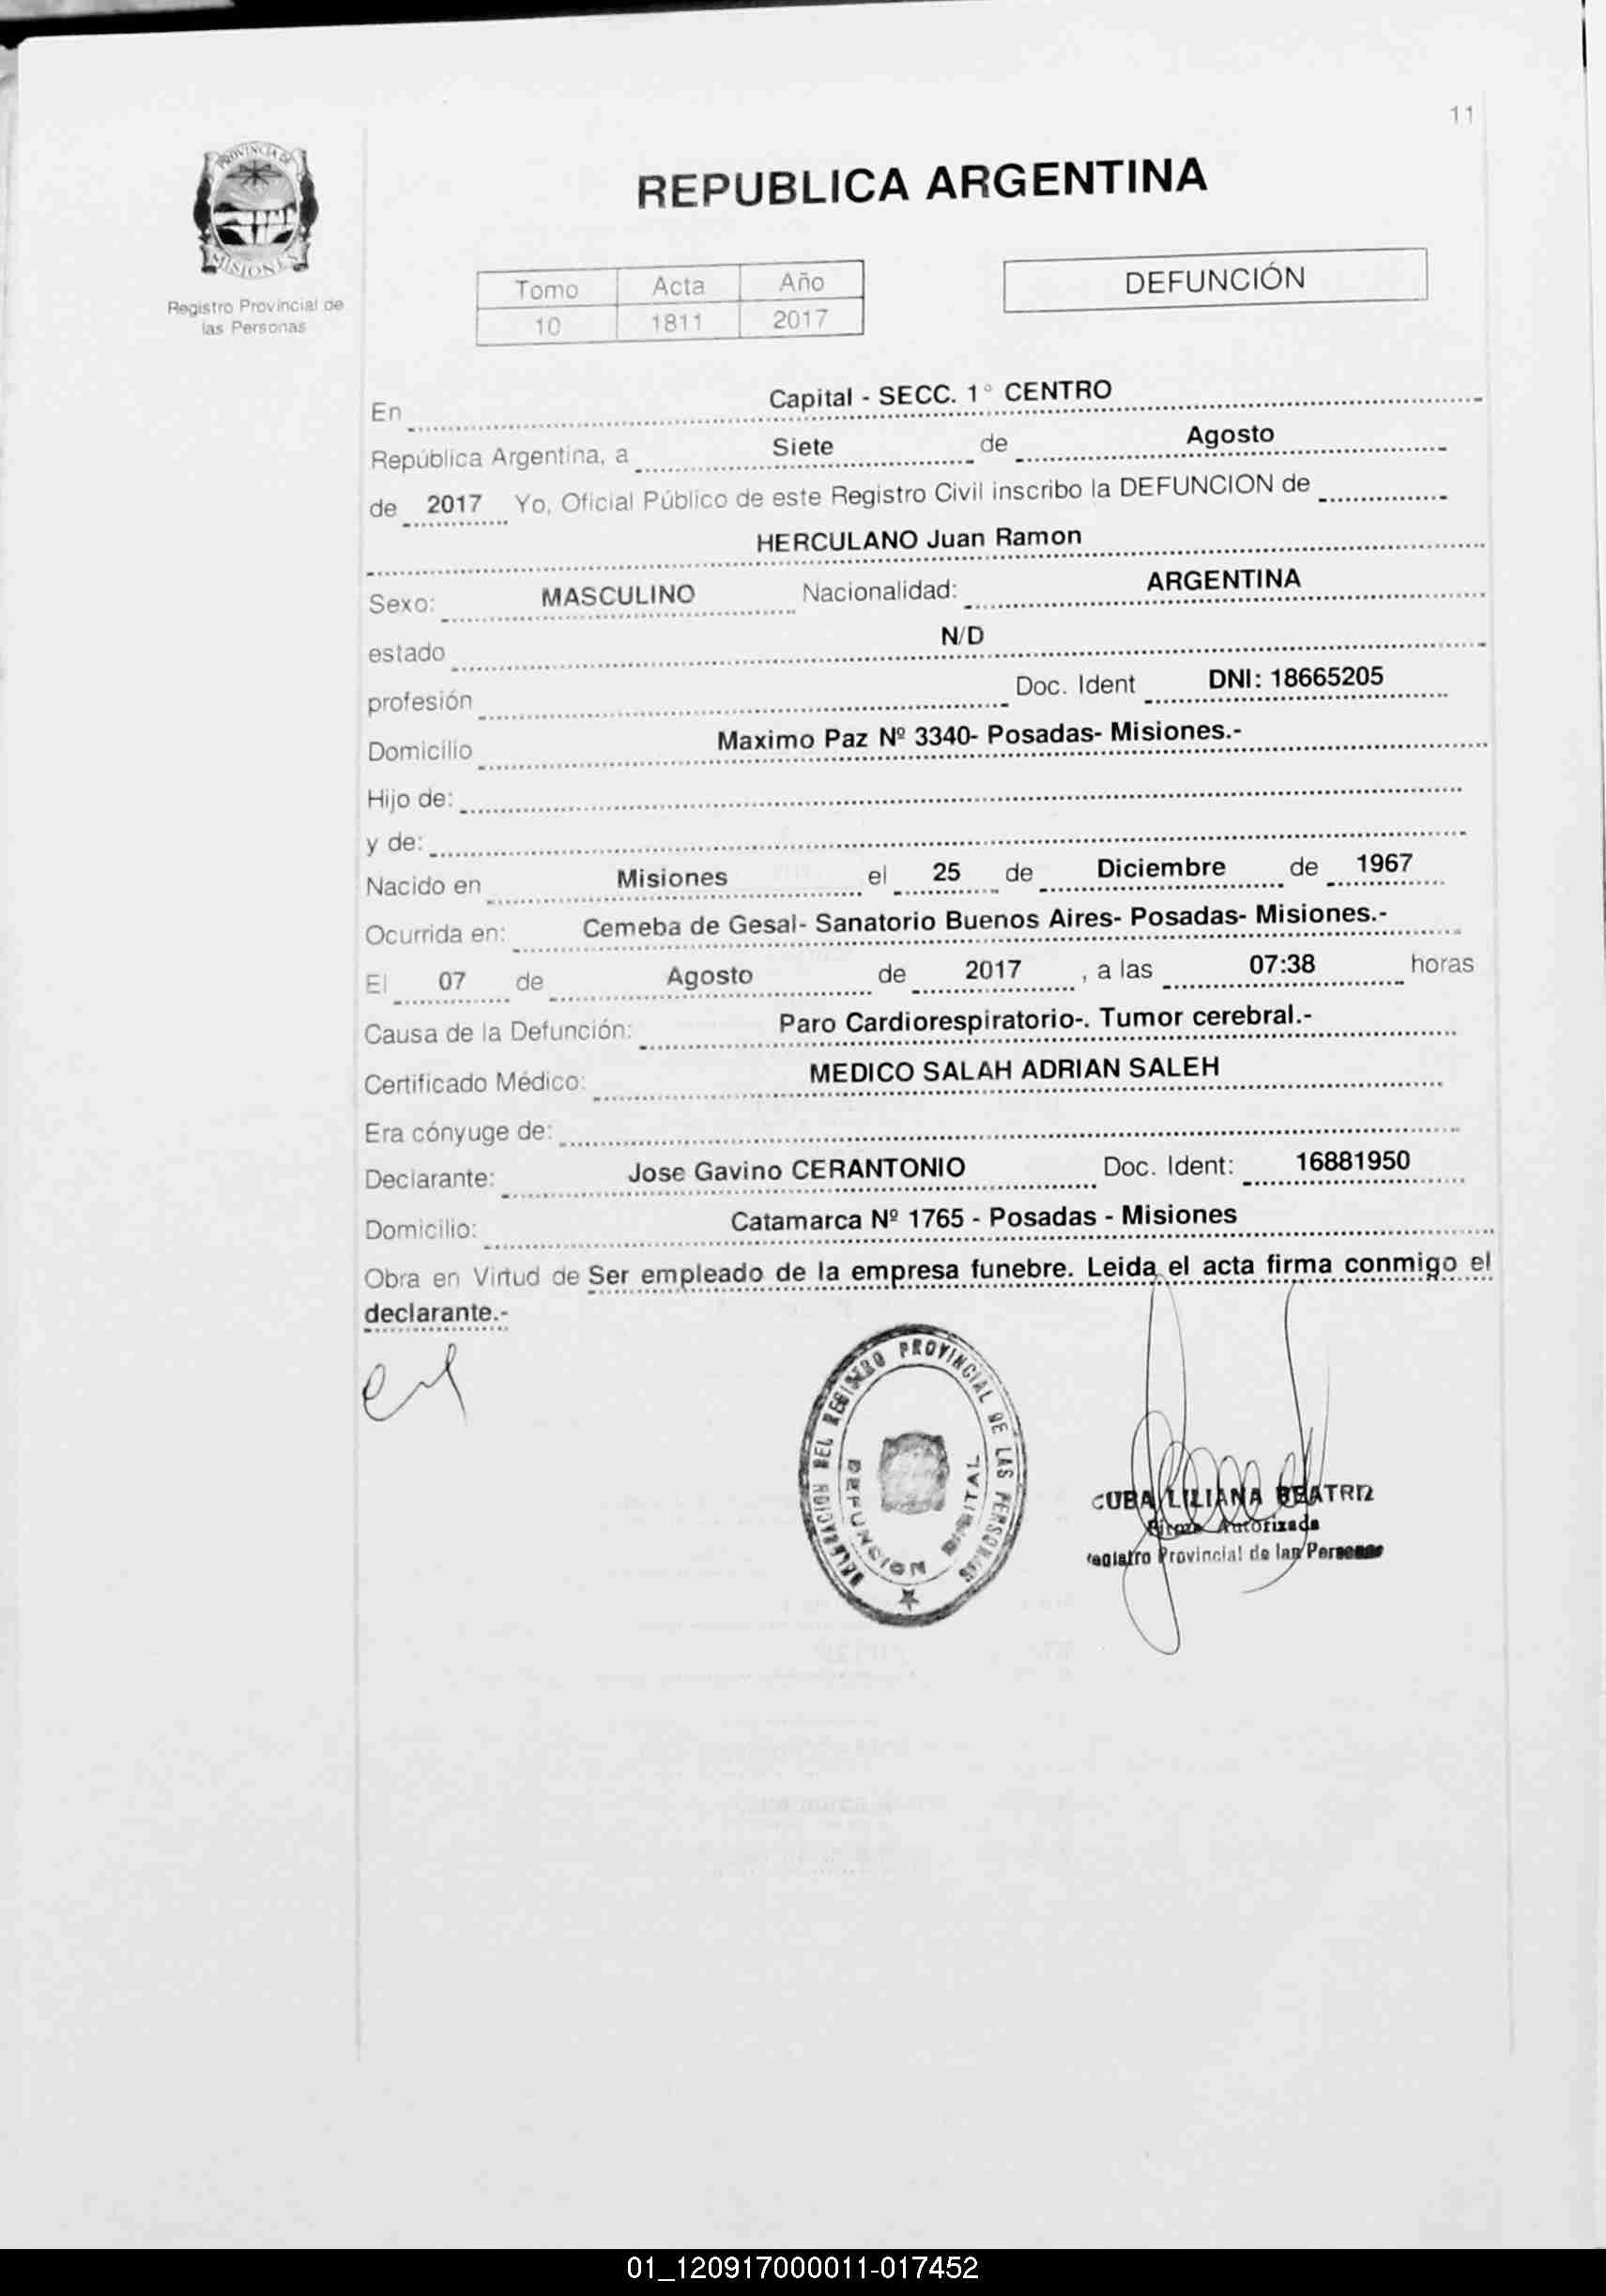 11
PROVINCIA DE
MISIONES
Registro Provincial de
las Personas
REPUBLICA ARGENTINA
Tomo Acta Año
10 1811 2017
DEFUNCIÓN
En Capital - SECC. 1° CENTRO
República Argentina, a Siete de Agosto
de 2017 Yo, Oficial Público de este Registro Civil inscribo la DEFUNCION de
HERCULANO Juan Ramon
Sexo: MASCULINO Nacionalidad: ARGENTINA
estado N/D
profesión Doc. Ident DNI: 18665205
Domicilio Maximo Paz Nº 3340- Posadas- Misiones.-
Hijo de:
y de:
Nacido en Misiones el 25 de Diciembre de 1967
Ocurrida en: Cemeba de Gesal- Sanatorio Buenos Aires- Posadas- Misiones.-
El 07 de Agosto de 2017 , a las 07:38 horas
Causa de la Defunción: Paro Cardiorespiratorio-. Tumor cerebral.-
Certificado Médico: MEDICO SALAH ADRIAN SALEH
Era cónyuge de:
Declarante: Jose Gavino CERANTONIO Doc. Ident: 16881950
Domicilio: Catamarca Nº 1765 - Posadas - Misiones
Obra en Virtud de Ser empleado de la empresa funebre. Leida el acta firma conmigo el
declarante.-
DEL REGISTRO PROVINCIAL DE LAS PERSONAS
DEFUNCION DIGITAL
CUBA LILIANA BEATRIZ
Firma Autorizada
Registro Provincial de las Personas
01_120917000011-017452